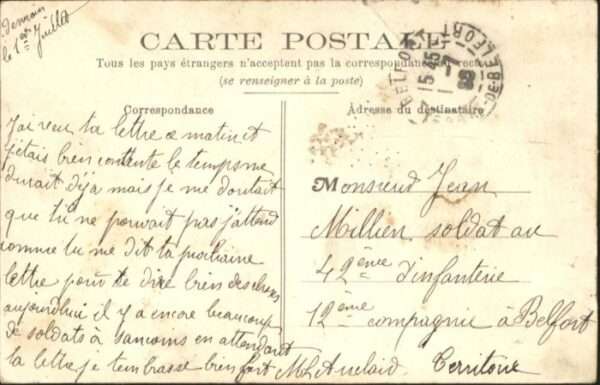 le 1er Juillet
CARTE POSTALE
Tous les pays étrangers n'acceptent pas la correspondance au recto
(se renseigner à la poste)
Correspondance
J'ai reçu ta lettre ce matin et
j'étais bien contente le temps me
durait déja mais je me doutait
que tu ne pouvait pas j'attend
comme tu me dit ta prochaine
lettre pour te dire bien des choses
aujourdhui il y a encore beaucoup
de soldats à sancoins en attendant
ta lettre je tembrasse bien fort
Adresse du destinataire
Monsieur Jean
Millien soldat au
42ème d'infanterie
12ème compagnie à Belfort
Territoire